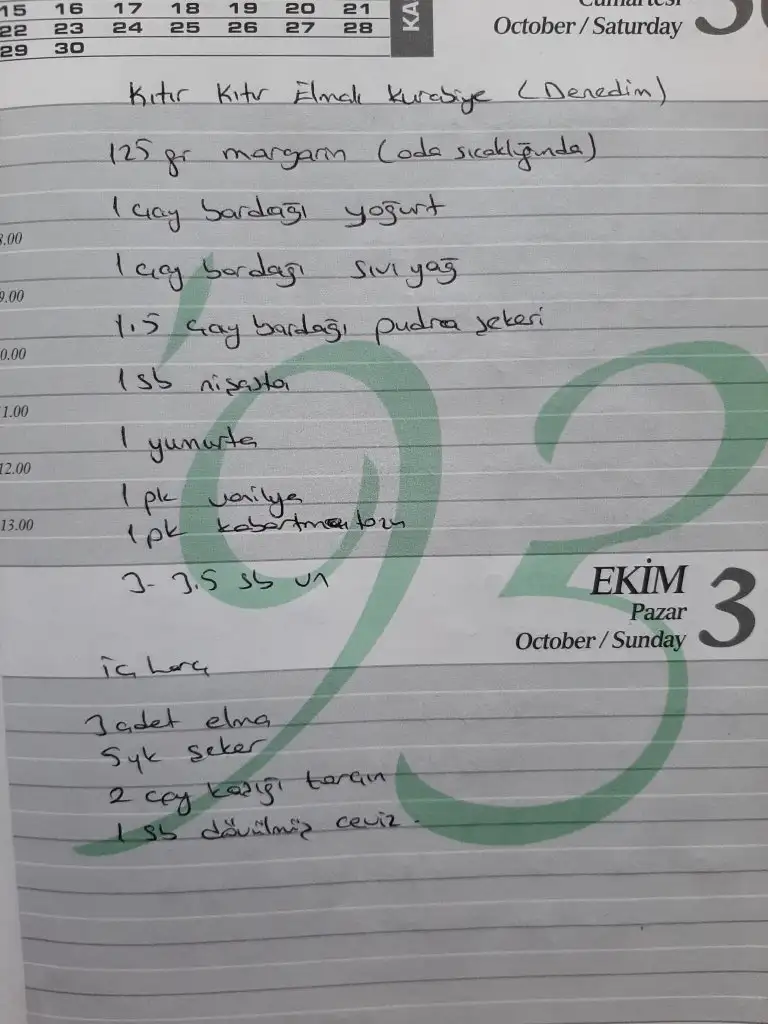 15 16 17 18 19 20 21
22 23 24 25 26 27 28
29 30
KA
Cumartesi
October / Saturday
Kıtır Kıtır Elmalı kurabiye (Denedim)
125 gr margarin (oda sıcaklığında)
1 çay bardağı yoğurt
8.00
1 çay bardağı sıvı yağ
9.00
1.5 çay bardağı pudra şekeri
0.00
1 sb nişasta
11.00
1 yumurta
12.00
1 pk vanilya
13.00
1 pk kabartma tozu
3- 3.5 sb un
EKİM 3
Pazar
October / Sunday
iç harç
3 adet elma
5 yk şeker
2 çay kaşığı tarçın
1 sb dövülmüş ceviz.
'93